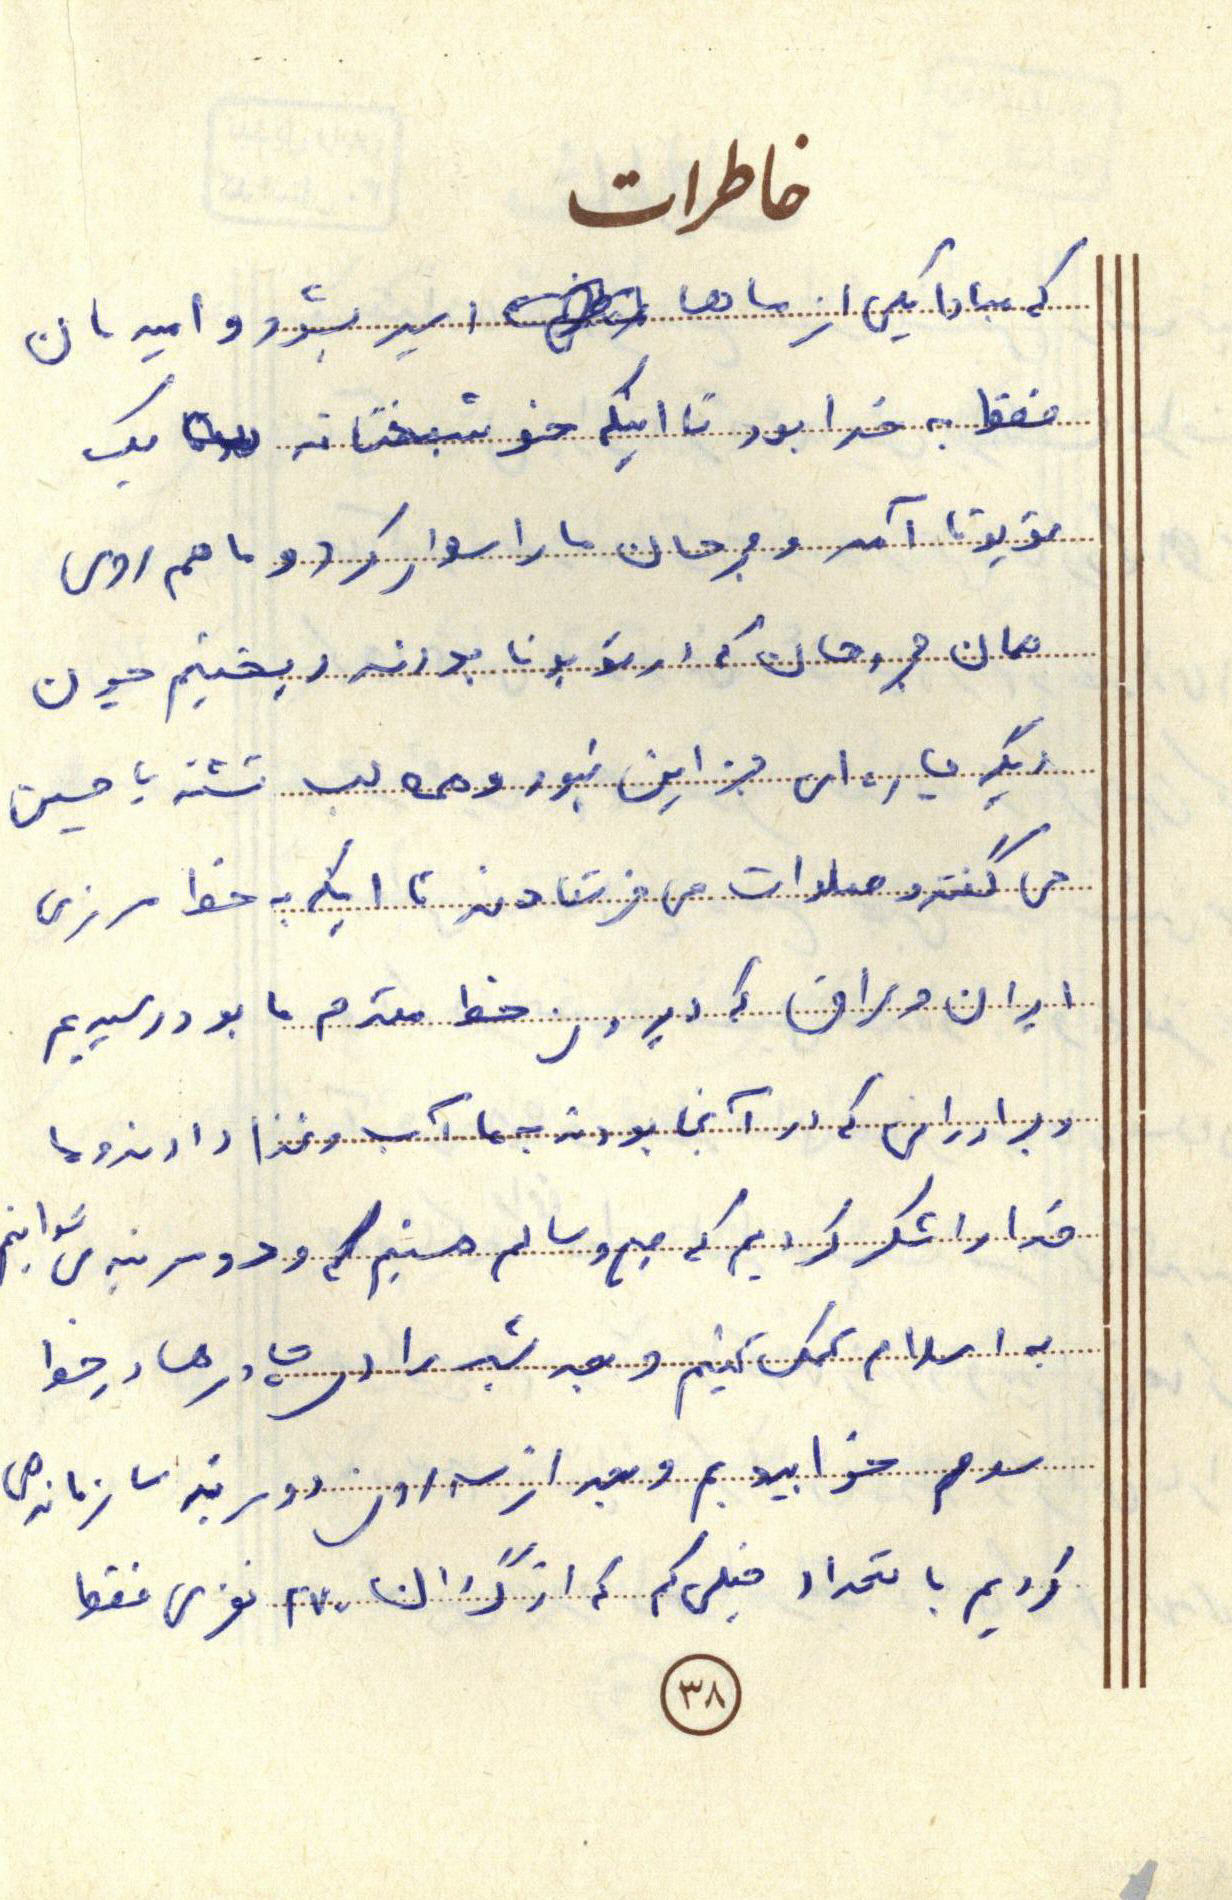 خاطرات
که مبادا یکی از ماها اسیر بشود و امیدمان
فقط به خدا بود تا اینکه خوشبختانه یک
تویوتا آمد و مجروحان ما را سوار کرد و ما هم روی
همان مجروحان که در تویوتا بودند ریختیم چون
دیگر چاره ای جز این نبود و همه لب تشنه یا حسین
می گفتند و صلوات می فرستادند تا اینکه به خط مرزی
ایران و عراق که دیروز خط مقدم ما بود رسیدیم
و برادرانی که در آنجا بودند به ما آب و غذا دادند و ما
خدا را شکر کردیم که صحیح و سالم هستیم و دو مرتبه می توانیم
به اسلام کمک کنیم و بعد شب را در چادرها در خط
سوم خوابیدیم و بعد از سه روز دو مرتبه سازماندهی
کردیم با تعداد خیلی کم که از گردان ۲۷۰ نفری فقط
۳۸